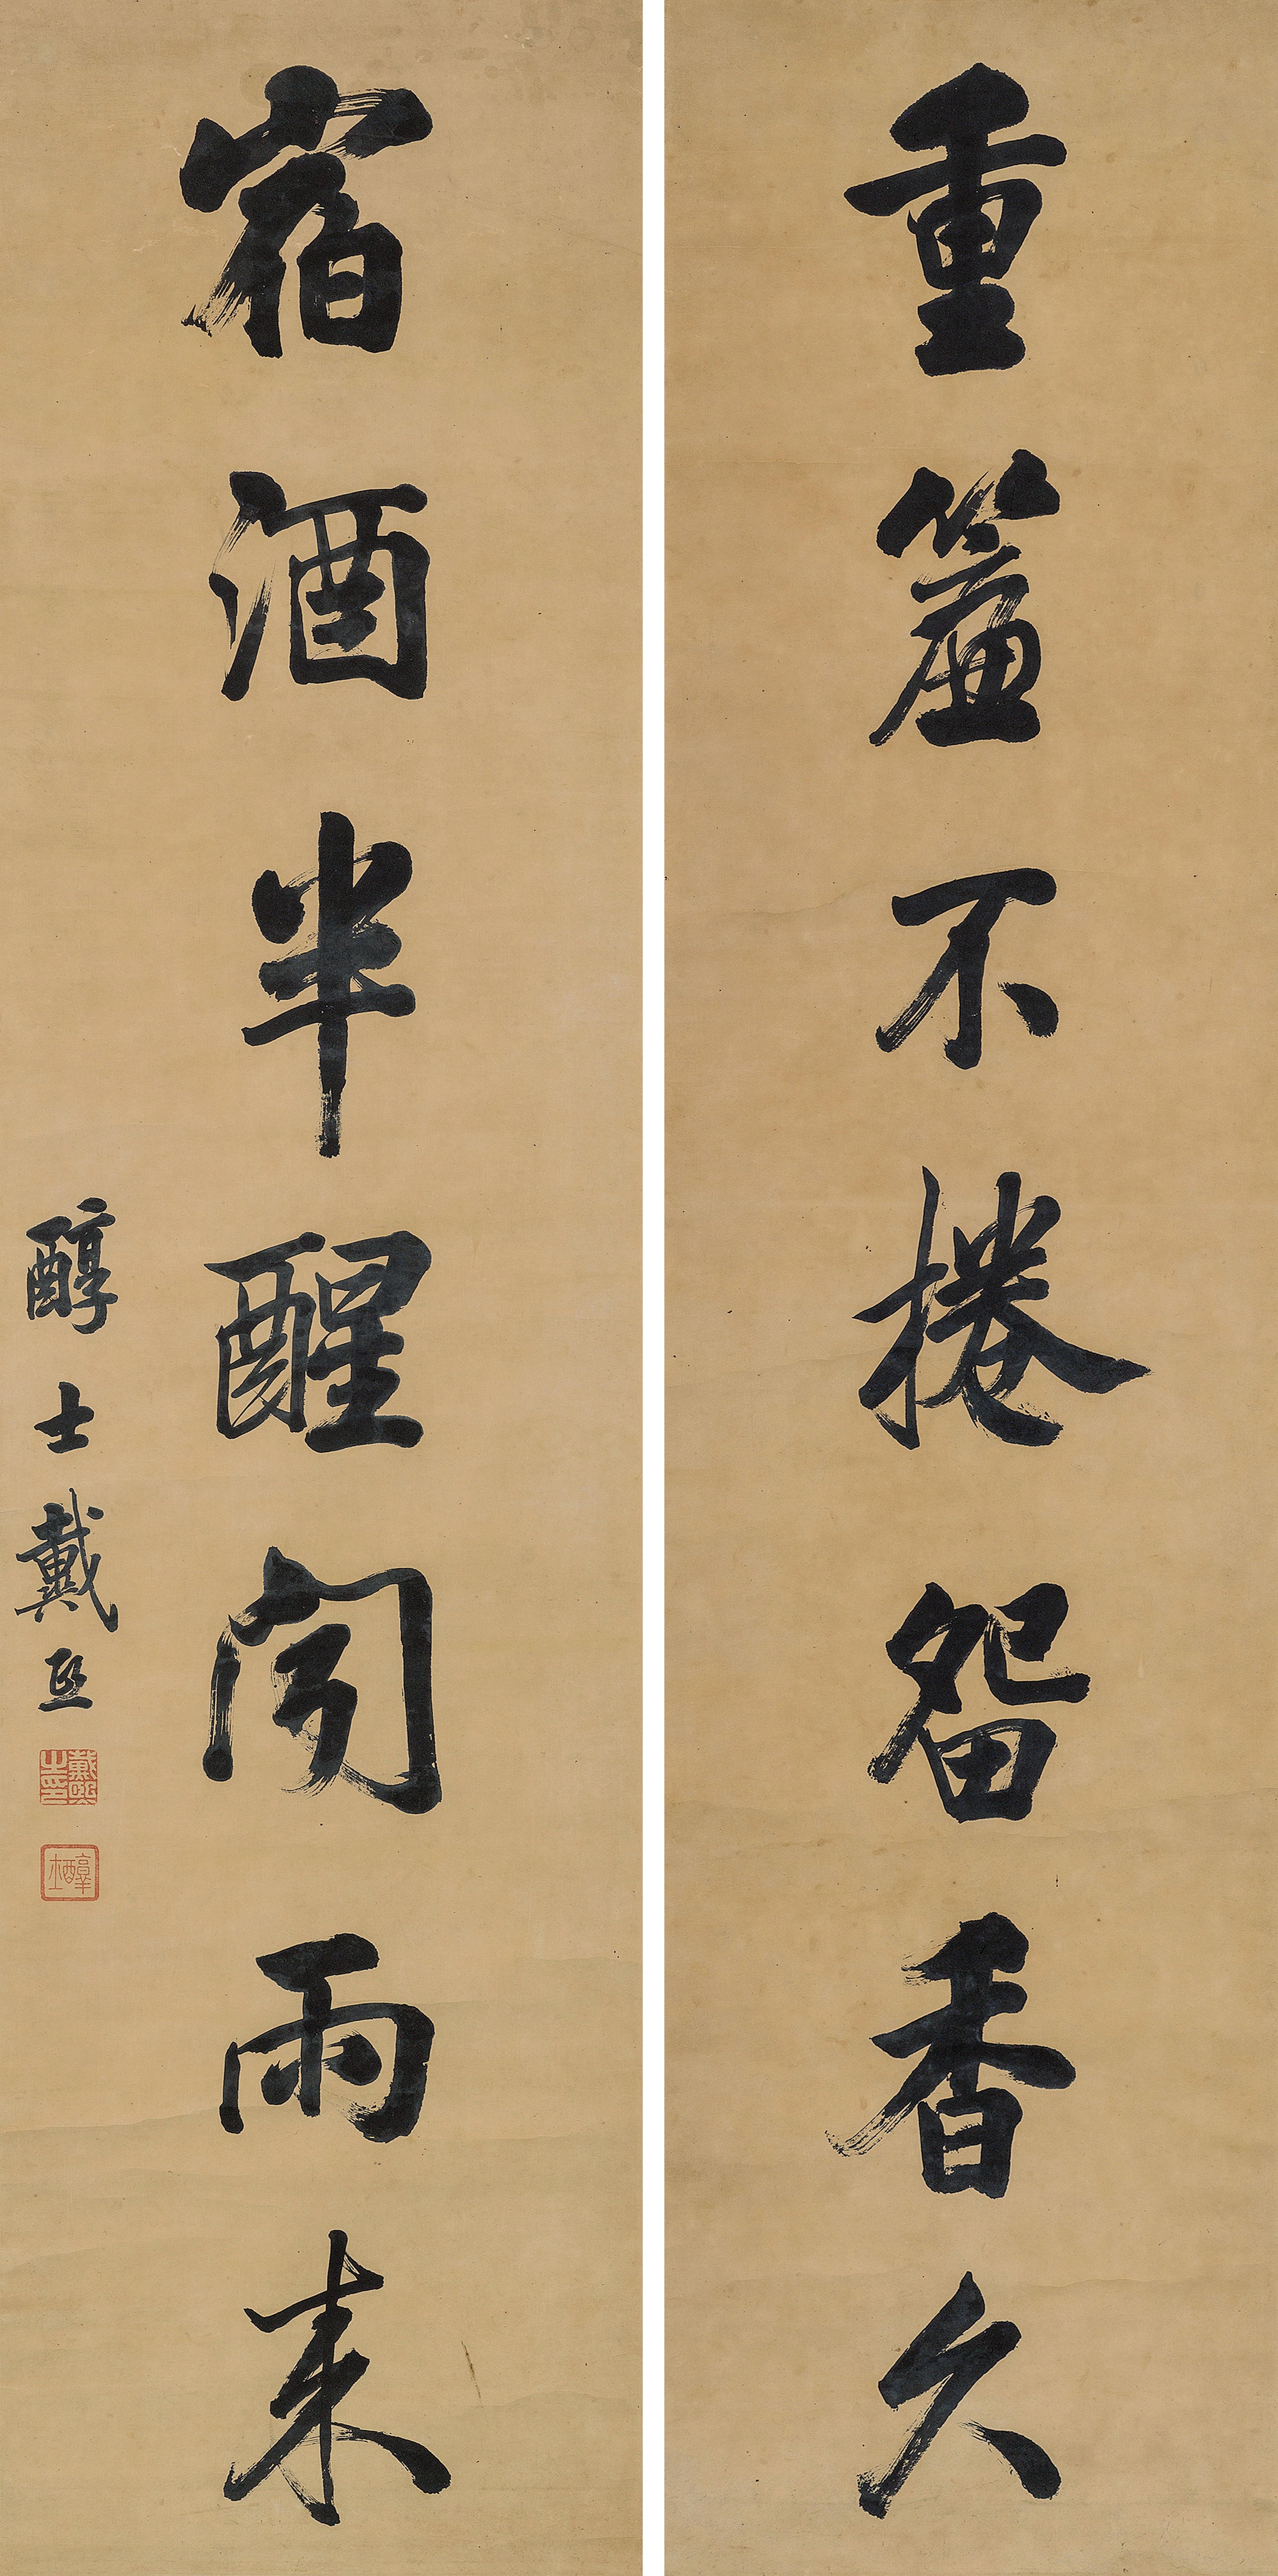 重簾不捲留香久
宿酒半醒聞雨來
醇士戴熙
戴熙之印